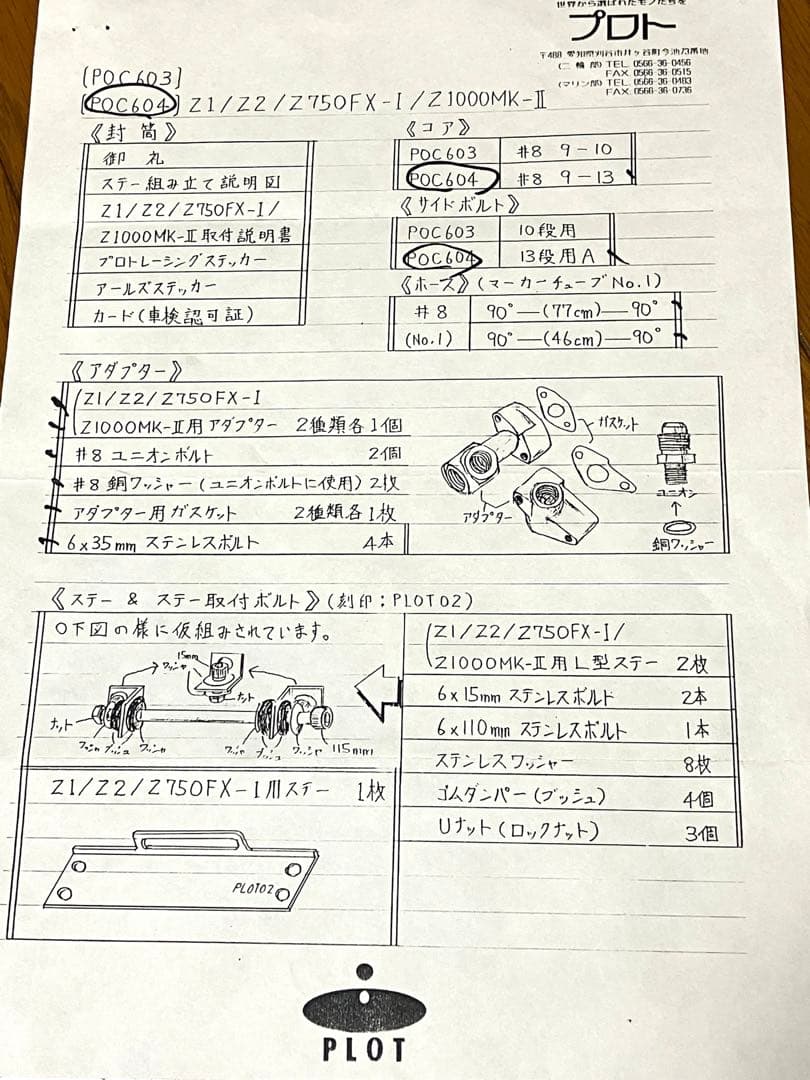 世界から選ばれたモノたちを
プロト
〒488 愛知県刈谷市井ヶ谷町今池73番地
(二輪部) TEL. 0566-36-0456
FAX. 0566-36-0515
(マリン部) TEL. 0566-36-0483
FAX. 0566-36-0736
[POC603]
[POC604] Z1/Z2/Z750FX-I/Z1000MK-II
《封筒》
御丸
ステー組み立て説明図
Z1/Z2/Z750FX-I/
Z1000MK-II取付説明書
プロトレーシングステッカー
アールズステッカー
カード(車検認可証)
《コア》
POC603 #8 9-10
POC604 #8 9-13
《サイドボルト》
POC603 10段用
POC604 13段用A
《ホース》(マーカーチューブNo.1)
#8 90°―(77cm)―90°
(No.1) 90°―(46cm)―90°
《アダプター》
(Z1/Z2/Z750FX-I
Z1000MK-II用アダプター 2種類各1個
#8 ユニオンボルト 2個
#8 銅ワッシャー(ユニオンボルトに使用) 2枚
アダプター用ガスケット 2種類各1枚
6x35mm ステンレスボルト 4本
ガスケット
アダプター
ユニオン
↑
銅ワッシャー
《ステー & ステー取付ボルト》(刻印;PLOT02)
○下図の様に仮組みされています。
15mm
ワッシャ
ナット
ナット
ワッシャ ブッシュ ワッシャ
ワッシャ ブッシュ ワッシャ 115mm
Z1/Z2/Z750FX-I用ステー 1枚
PLOT02
(Z1/Z2/Z750FX-I/
Z1000MK-II用L型ステー 2枚
6x15mm ステンレスボルド 2本
6x110mm ステンレスボルト 1本
ステンレスワッシャー 8枚
ゴムダンパー(ブッシュ) 4個
Uナット(ロックナット) 3個
PLOT